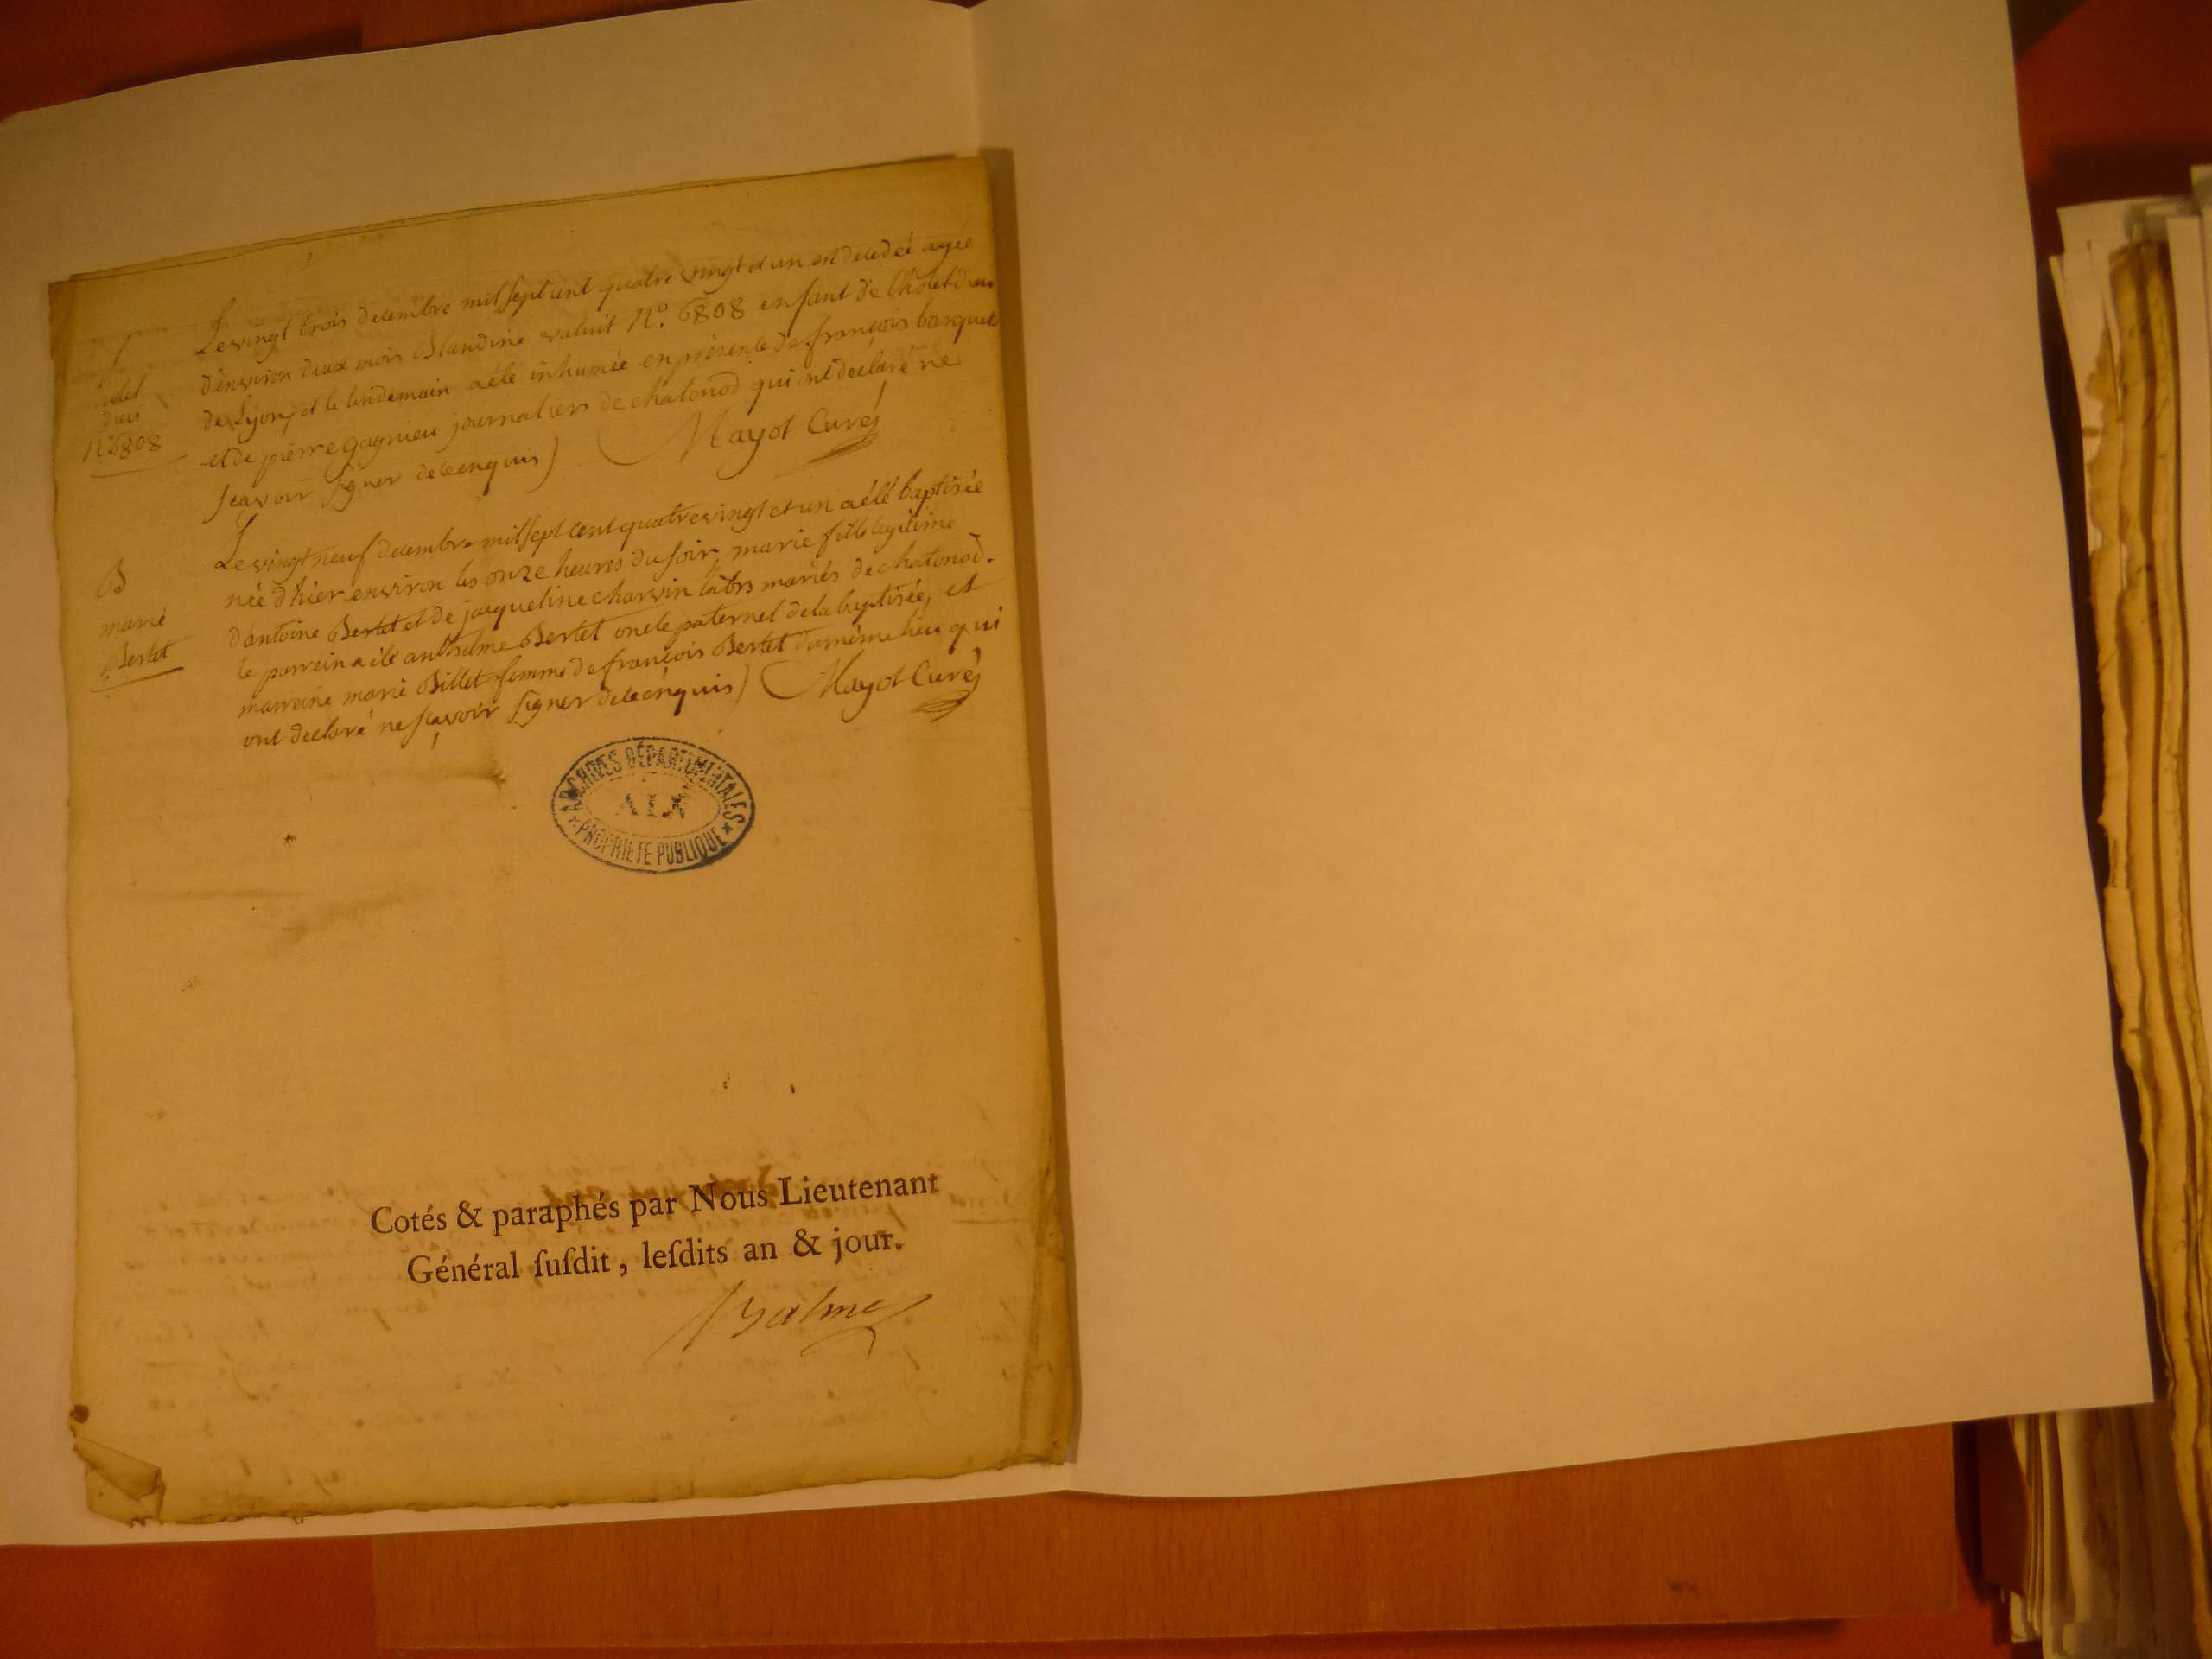 S
hotel
dieu
N°6808
Le vingt trois decembre mil sept cent quatre vingt et un est decedée agée
d'environ deux mois Blandine valuit N°. 6808 enfant de l'hoteldieu
de Lyon, et le lendemain a été inhumée en présence de françois barquet
et de pierre gagnieu journaliers de chatonod qui ont declaré ne
sçavoir signer de ce enquis) Mayot Curé
B
marie
Bertet
Le vingt neuf decembre mil sept cent quatre vingt et un a été baptisée
née d'hier environ les onze heures du soir, marie fille legitime
d'antoine Bertet et de jacqueline charvin labrs mariés de chatonod.
le parrein a été anthelme Bertet oncle paternel de la baptisée, et
marreine marie Billet femme de françois Bertet du même lieu qui
ont declaré ne sçavoir signer de ce enquis) Mayot Curé
ARCHIVES DÉPARTEMENTALES
AIN
PROPRIÉTÉ PUBLIQUE
Cotés & paraphés par Nous Lieutenant
Général ſuſdit, leſdits an & jour.
Balme